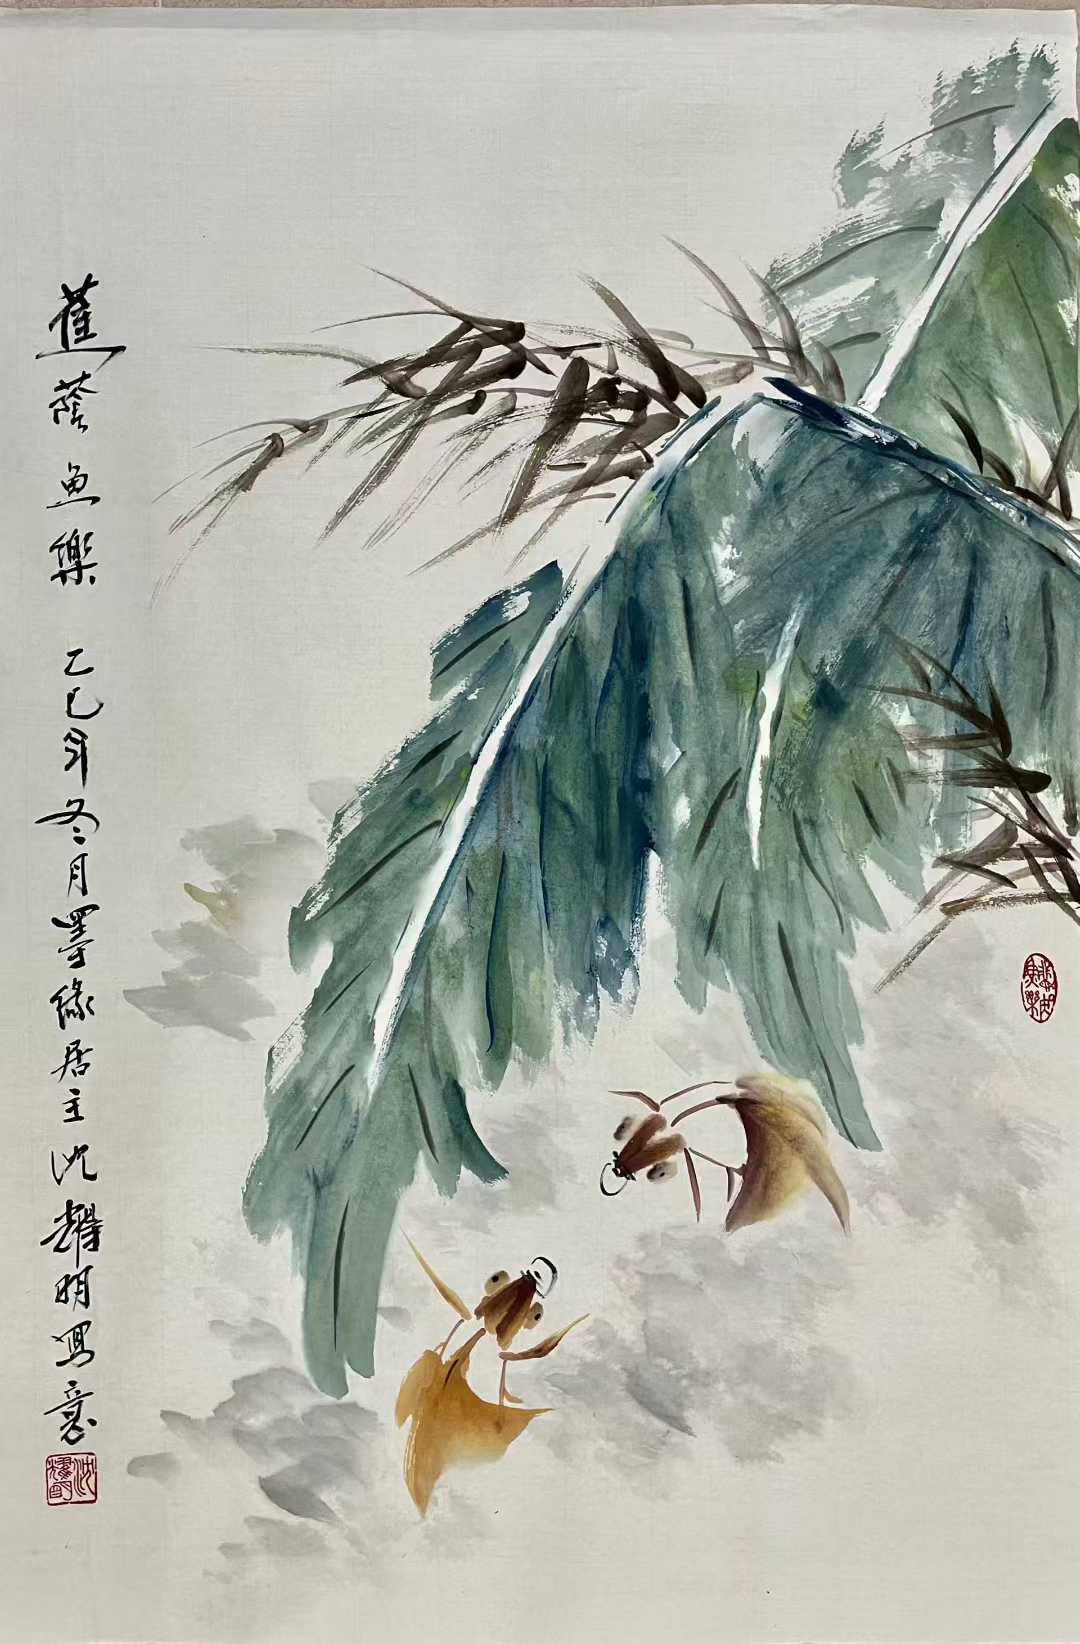 蕉蔭魚樂 乙巳年冬月墨緣居主沈耀明寫意
沈耀明